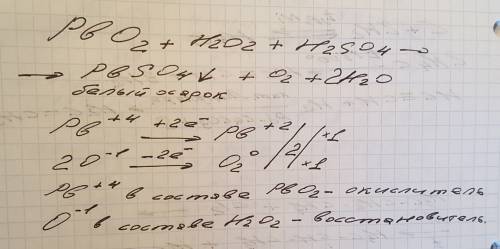 PbO₂ + H₂O₂ + H₂SO₄ →
→ PbSO₄↓ + O₂ + 2H₂O
белый осадок
Pb⁺⁴ +2e⁻ → Pb⁺² / 2 / ×1
2O⁻¹ −2e⁻ → O₂⁰ / ×1
Pb⁺⁴ в составе PbO₂ – окислитель
O⁻¹ в составе H₂O₂ – восстановитель.